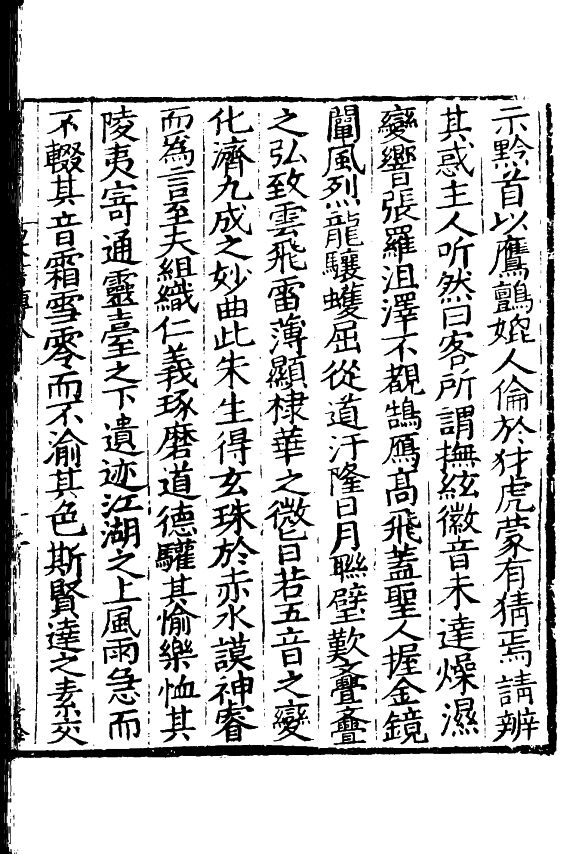 示黔首以鷹鸇媲人倫於犲虎蒙有猜焉請辨
其惑主人听然曰客所謂撫絃徽音未達燥濕
變響張羅沮澤不覩鵠鴈髙飛蓋聖人握金鏡
闡風烈龍驤蠖屈從道汙隆日月聯璧歎亹亹
之弘致雲飛雷薄顯棣華之微旨若五音之變
化濟九成之妙曲此朱生得玄珠於赤水謨神睿
而為言至夫組織仁義琢磨道德驩其愉樂恤其
陵夷寄通靈臺之下遺迹江湖之上風雨急而
不輟其音霜雪零而不渝其色斯賢達之素交